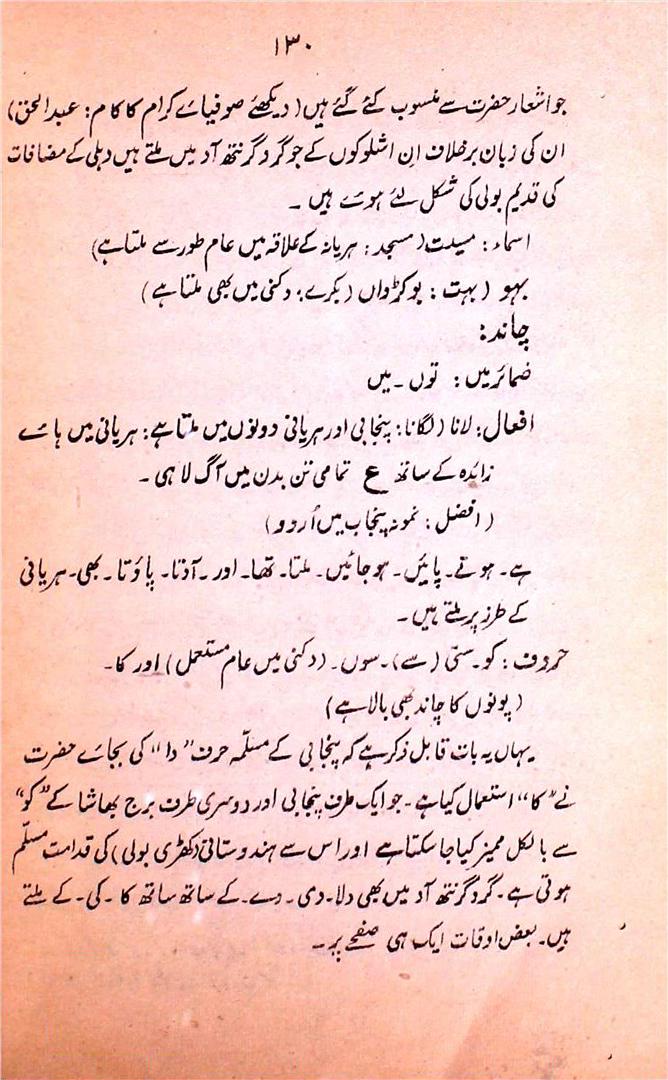 ۱۳۰
جو اشعار حضرت سے منسوب کئے گئے ہیں (دیکھئے صوفیائے کرام کا کام: عبدالحق)
ان کی زبان برخلاف اِن اشلوکوں کے جو گرد گرنتھ آد میں ملتے ہیں دہلی کے مضافات
کی قدیم بولی کی شکل لئے ہوئے ہیں ۔
اسماء: مسیت (مسجد: ہریانہ کے علاقہ میں عام طور سے ملتا ہے)
بہو (بہت: بوکڑواں (بکرے؛ دکنی میں بھی ملتا ہے)
چاند:
ضمائر میں: توں ۔ میں
افعال: لانا (لگانا: پنجابی اور ہریانی دونوں میں ملتا ہے: ہریانی میں ہائے
زائدہ کے ساتھ ع تمامی تن بدن میں آگ لا ہی ۔
(افضل: نمونہ پنجاب میں اُردو)
ہے۔ ہوتے۔ پائیں۔ ہو جائیں۔ ملتا۔ تھا۔ اور ۔ آؤتا۔ پاؤتا ۔ بھی۔ ہریانی
کے طرز پر ملتے ہیں۔
حروف: کو۔ ستی (سے)۔ سوں۔ (دکنی میں عام مستعمل) اور کا۔
(پونوں کا چاند بھی بالا ہے)
یہاں یہ بات قابل ذکر ہے کہ پنجابی کے مسلّمہ حرف "دا" کی بجائے حضرت
نے "کا" استعمال کیا ہے۔ جو ایک طرف پنجابی اور دوسری طرف برج بھاشا کے "کو"
سے بالکل ممیز کیا جا سکتا ہے اور اس سے ہندوستانی (کھڑی بولی) کی قدامت مسلّم
ہوتی ہے۔ گرد گرنتھ آد میں بھی دلا۔ دی ۔ دے۔ کے ساتھ ساتھ کا ۔ کی۔ کے ملتے
ہیں۔ بعض اوقات ایک ہی صفحے پر۔